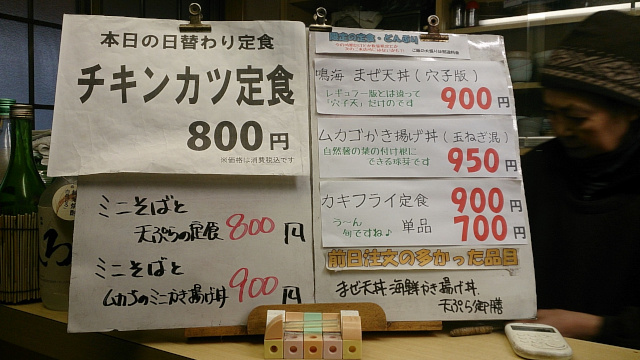 本日の日替わり定食
チキンカツ定食
800円
※価格は消費税込です
ミニそばと
天ぷらの定食 800円
ミニそばと
ムカゴのミニかき揚げ丼 900円
鳴海 まぜ天丼(穴子版)
レギュラー版とは違って
「穴子天」だけのです
900円
ムカゴかき揚げ丼(玉ねぎ混)
自然薯の葉の付け根に
できる球芽です
950円
カキフライ定食 900円
う〜ん
旬ですね♪
単品 700円
前日注文の多かった品目
まぜ天丼 海鮮かき揚げ丼
天ぷら御膳